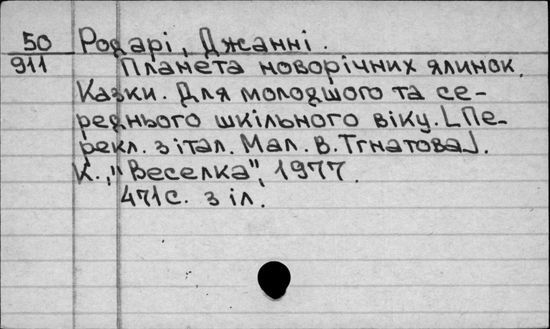 50 Родарі, Джанні.
911 Планета новорічних ялинок.
Казки. Для молодшого та се-
реднього шкільного віку. [Пе-
рекл. з італ. Мал. В. Ігнатова].
К., "Веселка", 1977.
471с. з іл.